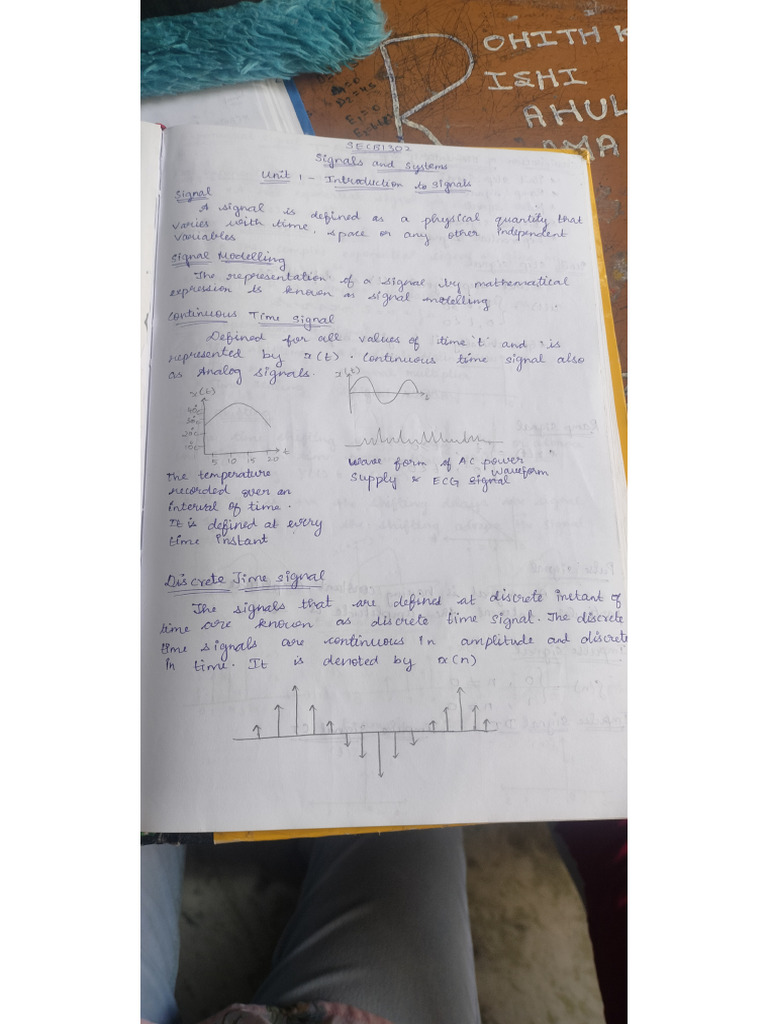 OHITH K
ISHI
AHUL
AMA
D2=45
SECB1302
Signals and Systems
Unit 1 - Introduction to Signals
Signal
A signal is defined as a physical quantity that
varies with time, space or any other independent
variables
Signal Modelling
The representation of a signal by mathematical
expression is known as signal modelling
Continuous Time Signal
Defined for all values of time 't' and is
represented by x(t). Continuous time signal also
as Analog signals.
x(t)
t
x(t)
40°
30°
20°
10°
5 10 15 20
t
Wave form of AC power
Supply & ECG signal waveform
The temperature
recorded over an
interval of time.
It is defined at every
time instant
Discrete Time Signal
The signals that are defined at discrete instant of
time are known as discrete time signal. The discrete
time signals are continuous in amplitude and discrete
in time. It is denoted by x(n)